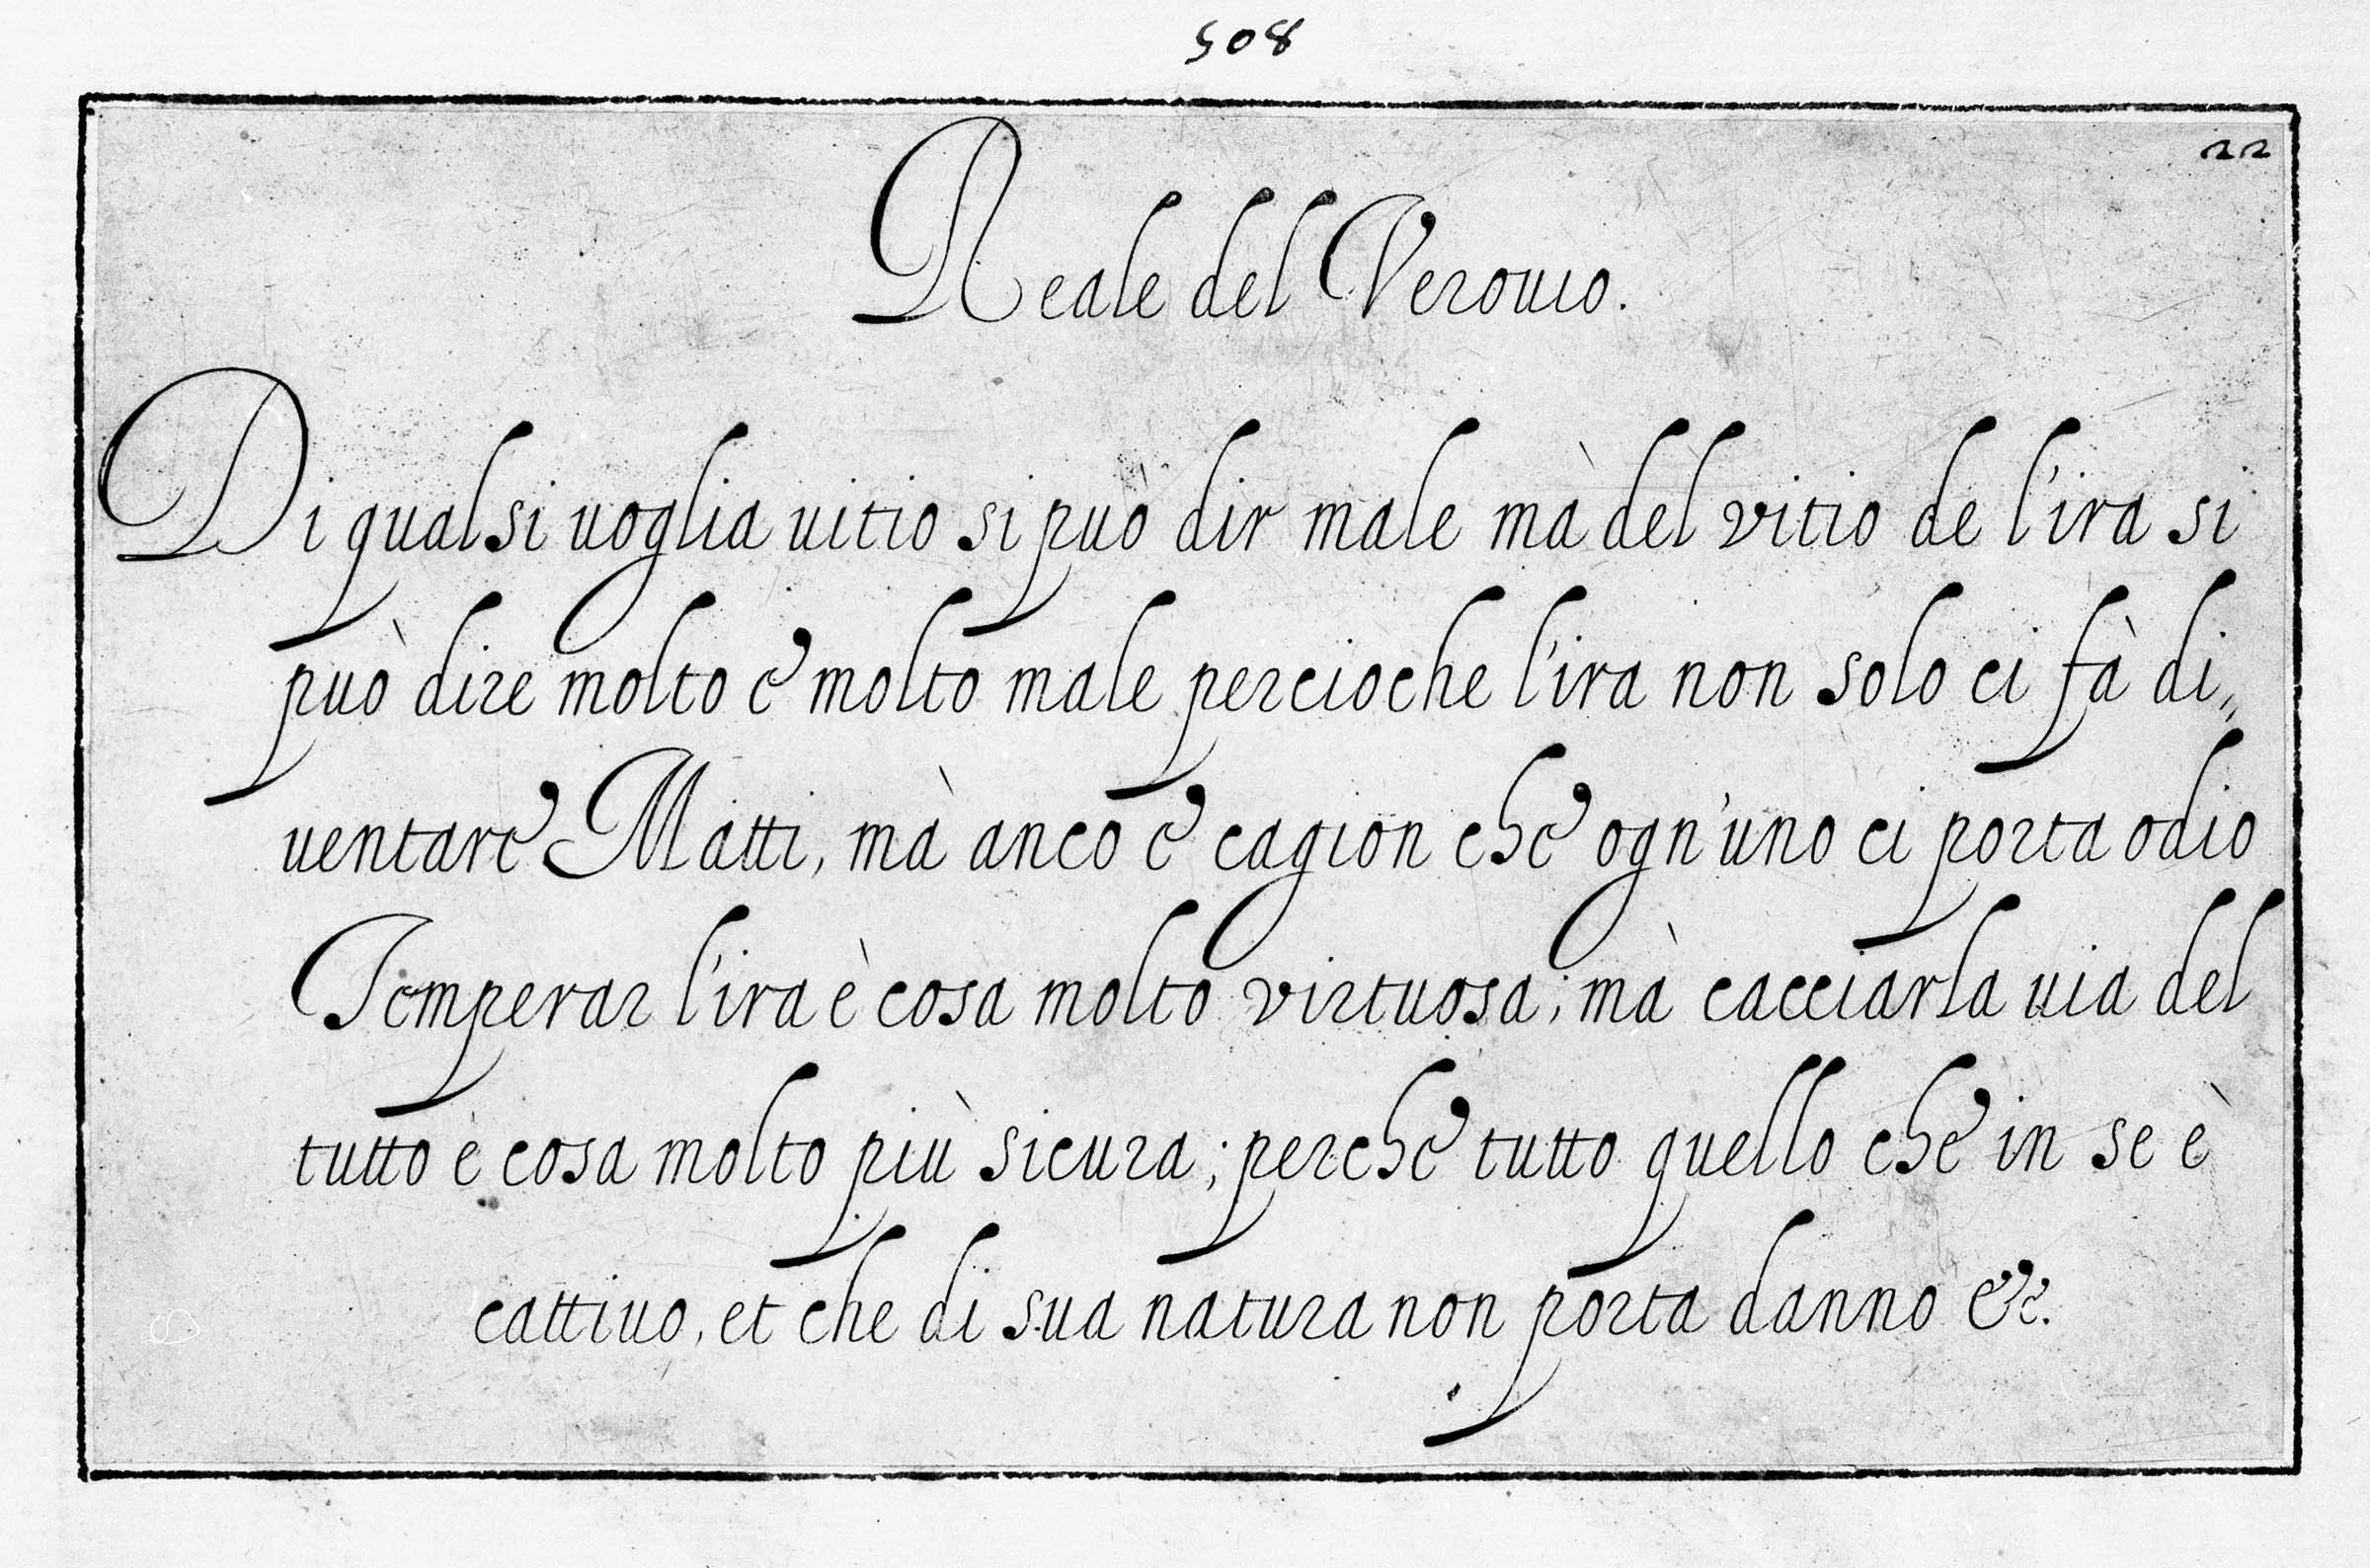 508
22
Reale del Verouio.
Di qual si uoglia uitio si può dir male mà del vitio de l'ira si
può dire molto e molto male percioche l'ira non solo ci fà di,,
uentare Matti, mà anco e cagion che ogn'uno ci porta odio
Temperar l'ira è cosa molto virtuosa; mà cacciarla uia del
tutto è cosa molto più sicura; perche tutto quello che in se è
cattiuo, et che di sua natura non porta danno &c.